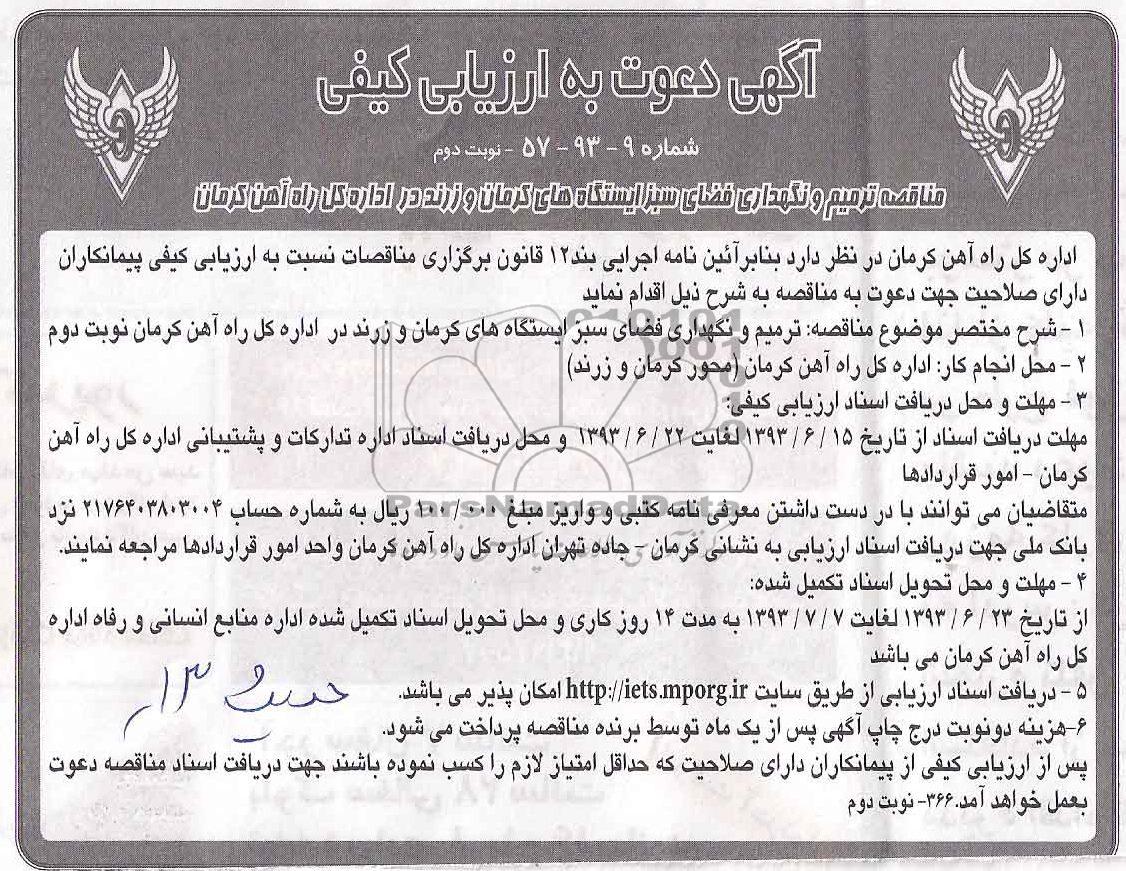 آگهی دعوت به ارزیابی کیفی
شماره ۹ - ۹۳ - ۵۷ - نوبت دوم
مناقصه ترمیم و نگهداری فضای سبز ایستگاه های کرمان و زرند در اداره کل راه آهن کرمان
اداره کل راه آهن کرمان در نظر دارد بنابرآئین نامه اجرایی بند۱۲ قانون برگزاری مناقصات نسبت به ارزیابی کیفی پیمانکاران
دارای صلاحیت جهت دعوت به مناقصه به شرح ذیل اقدام نماید
۱ - شرح مختصر موضوع مناقصه: ترمیم و نگهداری فضای سبز ایستگاه های کرمان و زرند در اداره کل راه آهن کرمان نوبت دوم
۲ - محل انجام کار: اداره کل راه آهن کرمان (محور کرمان و زرند)
۳ - مهلت و محل دریافت اسناد ارزیابی کیفی:
مهلت دریافت اسناد از تاریخ ۱۵ / ۶ / ۱۳۹۳ لغایت ۲۲ / ۶ / ۱۳۹۳ و محل دریافت اسناد اداره تدارکات و پشتیبانی اداره کل راه آهن
کرمان - امور قراردادها
ParsNamadData
متقاضیان می توانند با در دست داشتن معرفی نامه کتبی و واریز مبلغ ۱۰۰/۰۰۰ ریال به شماره حساب ۲۱۷۶۴۰۳۸۰۳۰۰۴ نزد
بانک ملی جهت دریافت اسناد ارزیابی به نشانی کرمان - جاده تهران اداره کل راه آهن کرمان واحد امور قراردادها مراجعه نمایند.
۴ - مهلت و محل تحویل اسناد تکمیل شده:
از تاریخ ۲۳ / ۶ / ۱۳۹۳ لغایت ۷ / ۷ / ۱۳۹۳ به مدت ۱۴ روز کاری و محل تحویل اسناد تکمیل شده اداره منابع انسانی و رفاه اداره
کل راه آهن کرمان می باشد
۵ - دریافت اسناد ارزیابی از طریق سایت http://iets.mporg.ir امکان پذیر می باشد.
۶-هزینه دونوبت درج چاپ آگهی پس از یک ماه توسط برنده مناقصه پرداخت می شود.
پس از ارزیابی کیفی از پیمانکاران دارای صلاحیت که حداقل امتیاز لازم را کسب نموده باشند جهت دریافت اسناد مناقصه دعوت
بعمل خواهد آمد.۳۶۶- نوبت دوم